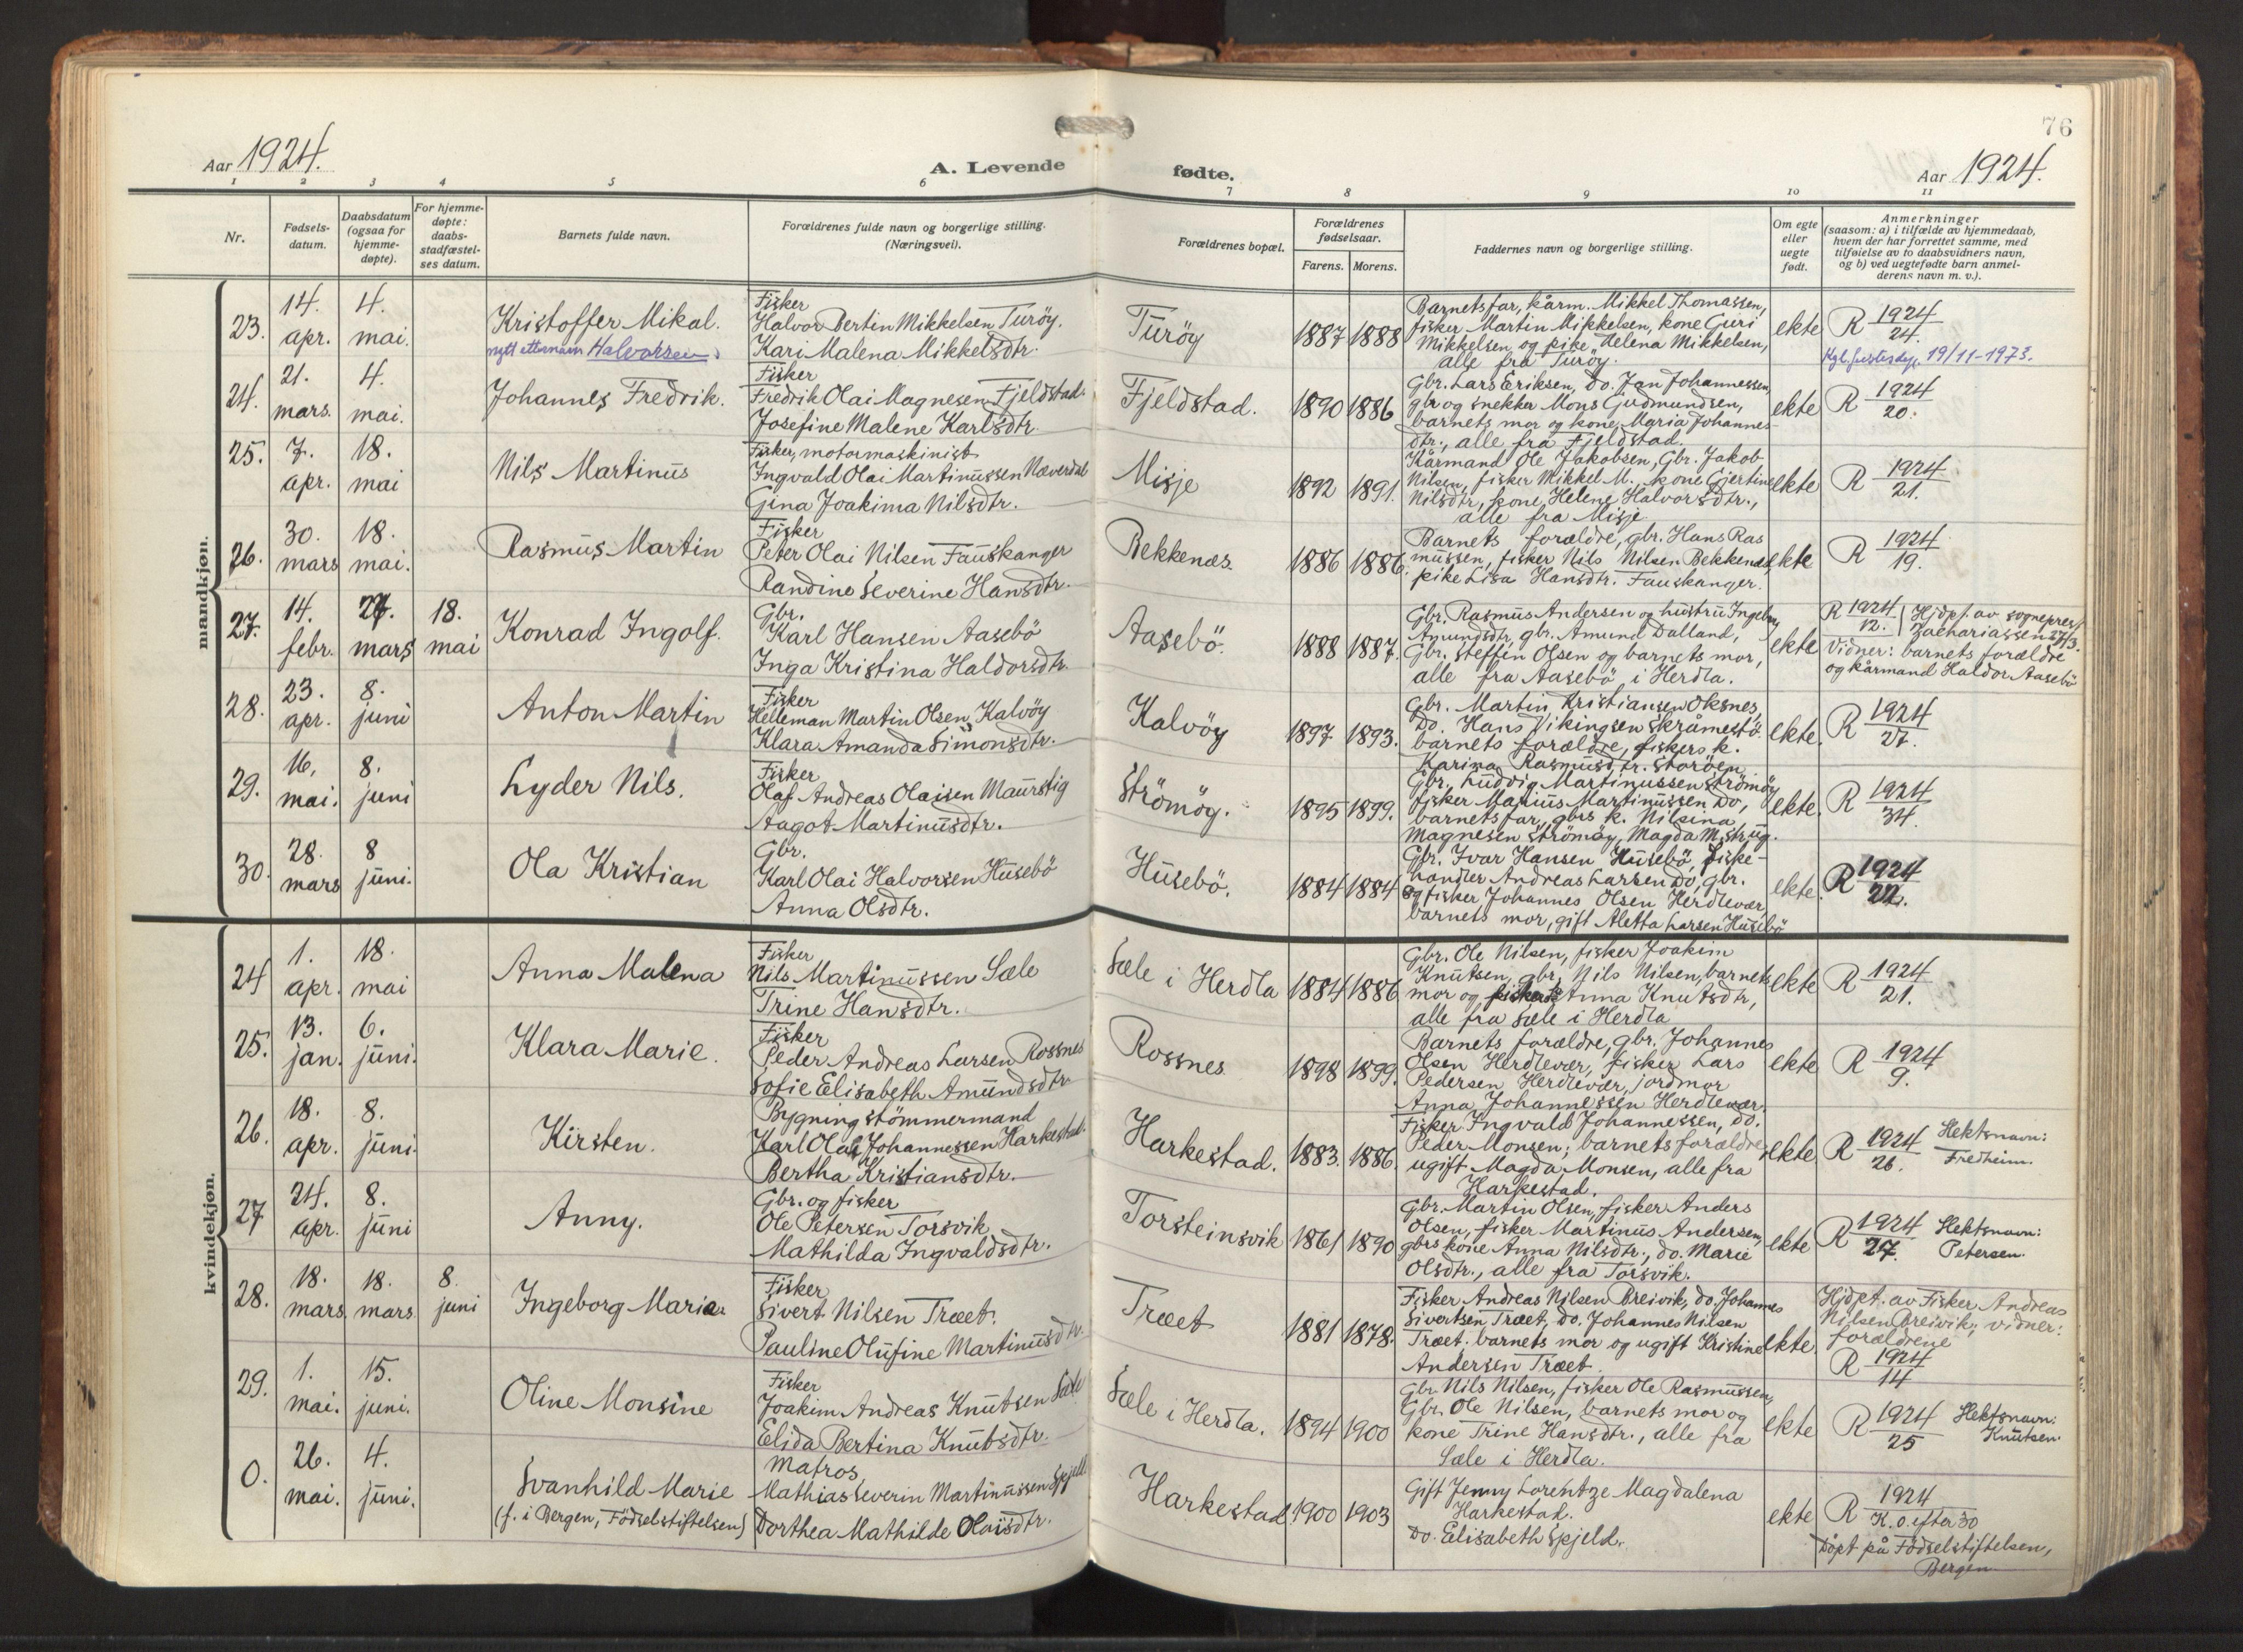 76
Aar 1924.
A. Levende fødte.
Aar 1924.
1 2 3 4 5 6 7 8 9 10 11
Nr.
Fødsels-
datum.
Daabsdatum
(ogsaa for
hjemme-
døpte).
For hjemme-
døpte:
daabs-
stadfæstel-
ses datum.
Barnets fulde navn.
Forældrenes fulde navn og borgerlige stilling.
(Næringsvei).
Forældrenes bopæl.
Forældrenes
fødselsaar.
Farens. Morens.
Faddernes navn og borgerlige stilling.
Om egte
eller
uegte
født.
Anmerkninger
(saasom: a) i tilfælde av hjemmedaab,
hvem der har forrettet samme, med
tilføielse av to daabsvidners navn,
og b) ved uegtefødte barn anmel-
derens navn m. v.).
mandkjøn.
23.
14.
apr.
4.
mai.
Kristoffer Mikal.
nytt etternavn Halvorsen.
Fisker
Halvor Bertin Mikkelsen Turöy.
Kari Malena Mikkelsdtr.
Turöy
1887 1888
Barnets far, kårm. Mikkel Thomassen,
fisker Martin Mikkelsen, kone Guri
Mikkelsen og pike Helena Mikkelsen,
alle fra Turöy.
ekte
R 1924
24.
Kgl. 19/11-1973.
24.
21.
mars.
4.
mai.
Johannes Fredrik.
Fisker
Fredrik Olai Magnesen Fjeldstad.
Josefine Malene Karlsdtr.
Fjeldstad.
1890 1886
Gbr. Lars Eriksen, do. Jan Johannessen,
gbr og snekker Mons Gudmundsen,
barnets mor og kone Maria Johannes-
dtr., alle fra Fjeldstad.
ekte
R 1924
20.
25.
7.
apr.
18.
mai
Nils Martinus
Fisker, motormaskinist
Ingvald Olai Martinussen Næverdal
Gina Joakima Nilsdtr.
Misje
1892 1891.
Kårmand Ole Jakobsen, Gbr. Jakob
Nilsen, fisker Mikkel M., kone Gjertine
Nilsdtr., kone Helene Halvorsdtr.,
alle fra Misje
ekte
R 1924
21.
26.
30.
mars
18.
mai.
Rasmus Martin
Fisker
Peter Olai Nilsen Fauskanger
Randine Severine Hansdtr.
Bekkenes
1886 1886.
Barnets forældre, gbr. Hans Ras
mussen, fisker Nils Nilsen Bekkenes,
pike Lisa Hansdtr. Fauskanger.
ekte
R 1924
19.
27.
14.
febr.
27.
mars
18.
mai
Konrad Ingolf.
Gbr.
Karl Hansen Aasebö
Inga Kristina Haldorsdtr.
Aasebö.
1888 1887.
Gbr. Rasmus Andersen og hustru Ingeborg
Amundsdtr, gbr. Amund Dalland,
Gbr. Steffen Olsen og barnets mor,
alle fra Aasebö i Herdla.
ekte
R 1924
12.
Hjdpt. av sogneprest
Zachariassen 27/3.
Vidner: barnets forældre
og kårmand Haldor Aasebö
28.
23.
apr.
8.
juni
Anton Martin
Fisker
Helleman Martin Olsen Kalvöy
Klara Amanda Simonsdtr.
Kalvöy
1897 1893.
Gbr. Martin Kristiansen Oksnes,
Do. Hans Vikingsen Skråmestö.
barnets forældre, fiskers k.
Karina Rasmusdtr. Storöen
ekte.
R 1924
27.
29.
16.
mai.
8.
juni
Lyder Nils.
Fisker
Olaf Andreas Olaisen Maurstig
Aagot Martinusdtr.
Strömöy.
1895 1899.
Gbr. Ludvig Martinussen Strömöy
fisker Marius Martinussen Do,
barnets far, gbrs k. Nilsina
Magnesen Strömöy, Magda
ekte.
R 1924
34.
30.
28.
mars
8
juni.
Ola Kristian
Gbr.
Karl Olai Halvorsen Husebö
Anna Olsdtr.
Husebö.
1884 1884
Gbr. Ivar Hansen Husebö, fiske-
handler Andreas Larsen Do, gbr.
og fisker Johannes Olsen Herdlevær,
barnets mor, gift Aletta Larsen Husebö
ekte.
R 1924
22.
kvindekjøn.
24
1.
apr.
18.
mai
Anna Malena
Fisker
Nils Martinussen Sæle
Trine Hansdtr.
Sæle i Herdla
1884 1886
Gbr. Ole Nilsen, fisker Joakim
Knutsen, gbr. Nils Nilsen, barnets
mor og Anna Knutsdtr,
alle fra Sæle i Herdla
ekte
R 1924
21.
25.
13.
jan.
6.
juni.
Klara Marie.
Fisker
Peder Andreas Larsen Rossnes
Sofie Elisabeth Amundsdtr.
Rossnes
1898 1899.
Barnets forældre, gbr. Johannes
Olsen Herdlevær, fisker Lars
Pedersen Herdlevær, jordmor
Anna Johannessen Herdlevær.
ekte
R 1924
9.
26.
18.
apr.
8.
juni.
Kirsten.
Bygningstömmermand
Karl Olai Johannessen Harkestad.
Bertha Kristiansdtr.
Harkestad.
1883. 1886.
Fisker Ingvald Johannessen, do.
Peder Monsen; barnets forældre,
ugift Magda Monsen, alle fra
Harkestad.
ekte
R 1924
26.
Slektsnavn:
Fredheim.
27
24.
apr.
8.
juni
Anny.
Gbr. og fisker
Ole Petersen Torsvik
Mathilda Ingvaldsdtr.
Torsteinsvik
1861 1890
Gbr. Martin Olsen, fisker Anders
Olsen, fisker Martinus Andersen,
gbrs kone Anna Nilsdtr., do. Marie
Olsdtr., alle fra Torsvik.
ekte
R 1924
27.
Slektsnavn:
Petersen.
28.
18.
mars.
18.
mars
8.
juni
Ingeborg Marie
Fisker
Sivert Nilsen Træet.
Pauline Olufine Martinusdtr.
Træet
1881 1878.
Fisker Andreas Nilsen Breivik, do. Johannes
Sivertsen Træet, do. Johannes Nilsen
Træet, barnets mor og ugift Kristine
Andersen Træet.
ekte.
Hjdpt. av Fisker Andreas
Nilsen Breivik; vidner:
forældrene
R 1924
14
29.
1.
mai.
15.
juni.
Oline Monsine
Fisker
Joakim Andreas Knutsen Sæle
Elida Bertina Knutsdtr.
Sæle i Herdla.
1894 1900
Gbr. Nils Nilsen, fisker Ole Rasmussen,
Gbr. Ole Nilsen, barnets mor og
kone Trine Hansdtr., alle fra
Sæle i Herdla.
ekte
R 1924
25
Slektsnavn:
Knutsen.
0.
26.
mai.
4.
juni.
Svanhild Marie
(f. i Bergen, Födselstiftelsen)
Matros
Mathias Severin Martinussen Spjeld
Dorthea Mathilde Olaisdtr.
Harkestad
1900 1903
Gift Jenny Lorentze Magdalena
Harkestad.
Do. Elisabeth Spjeld.
ekte
R 1924
K. 0. efter 30
Döpt på Födselstiftelsen,
Bergen.